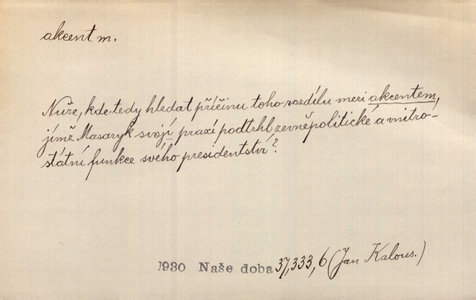 akcent m.
Nuže, kde tedy hledat příčinu toho rozdílu mezi akcentem,
jímž Masaryk svojí praxí podtrhl zevněpolitické a vnitro-
státní funkce svého presidentství?
1930 Naše doba 37,333,6 (Jan Kalous.)